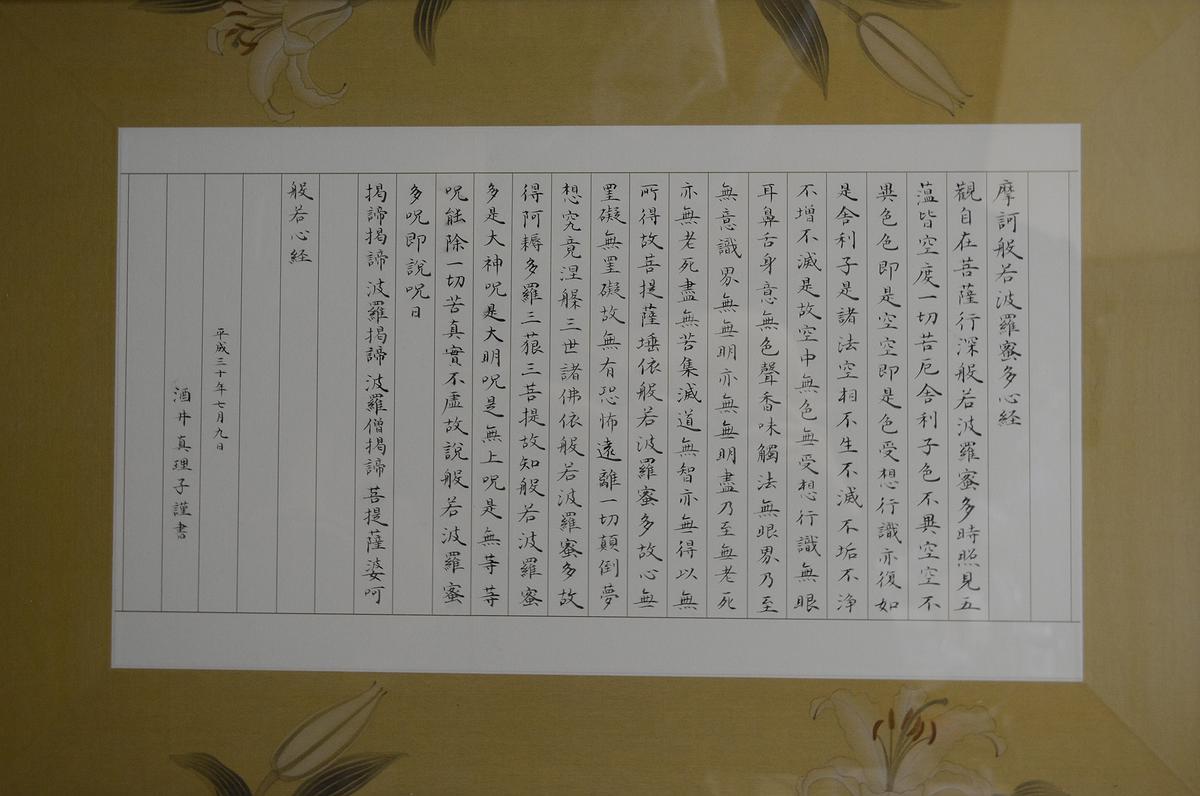 摩訶般若波羅蜜多心経
觀自在菩薩行深般若波羅蜜多時照見五
蘊皆空度一切苦厄舎利子色不異空空不
異色色即是空空即是色受想行識亦復如
是舎利子是諸法空相不生不滅不垢不浄
不増不滅是故空中無色無受想行識無眼
耳鼻舌身意無色聲香味觸法無眼界乃至
無意識界無無明亦無無明盡乃至無老死
亦無老死盡無苦集滅道無智亦無得以無
所得故菩提薩埵依般若波羅蜜多故心無
罣礙無罣礙故無有恐怖遠離一切顛倒夢
想究竟涅槃三世諸佛依般若波羅蜜多故
得阿耨多羅三藐三菩提故知般若波羅蜜
多是大神呪是大明呪是無上呪是無等等
呪能除一切苦真實不虚故説般若波羅蜜
多呪即説呪曰
揭諦揭諦波羅揭諦波羅僧揭諦菩提薩婆呵
般若心経
平成三十年七月九日
酒井真理子謹書